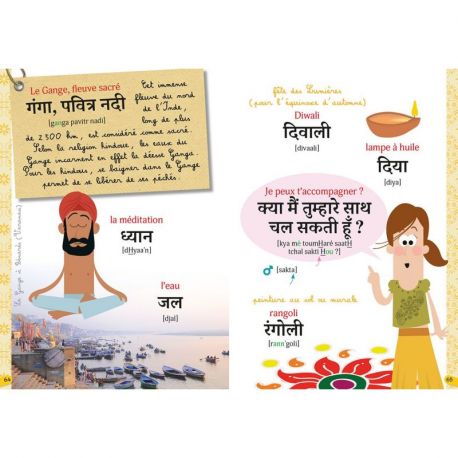 Le Gange, fleuve sacré
गंगा, पवित्र नदी
[ganga pavitr nadi]
Cet immense
fleuve du nord
de l'Inde,
long de plus
de 2500 km, est considéré comme sacré.
Selon la religion hindoue, les eaux du
Gange incarnent en effet la déesse Ganga.
Pour les hindous, se baigner dans le Gange
permet de se libérer de ses péchés.
la méditation
ध्यान
[dHyaa'n]
l'eau
जल
[djal]
Le Gange à Bénarès (Varanasi)
64
fête des Lumières
(pour l'équinoxe d'automne)
Diwali
दिवाली
[divaali]
lampe à huile
दिया
[diya]
Je peux t'accompagner ?
क्या मैं तुम्हारे साथ
चल सकती हूँ ?
[kya mè toumHaré saatH
tchal sakti Hou ?]
♂ [sakta]
peinture au sol ou murale
rangoli
रंगोली
[rann'goli]
65